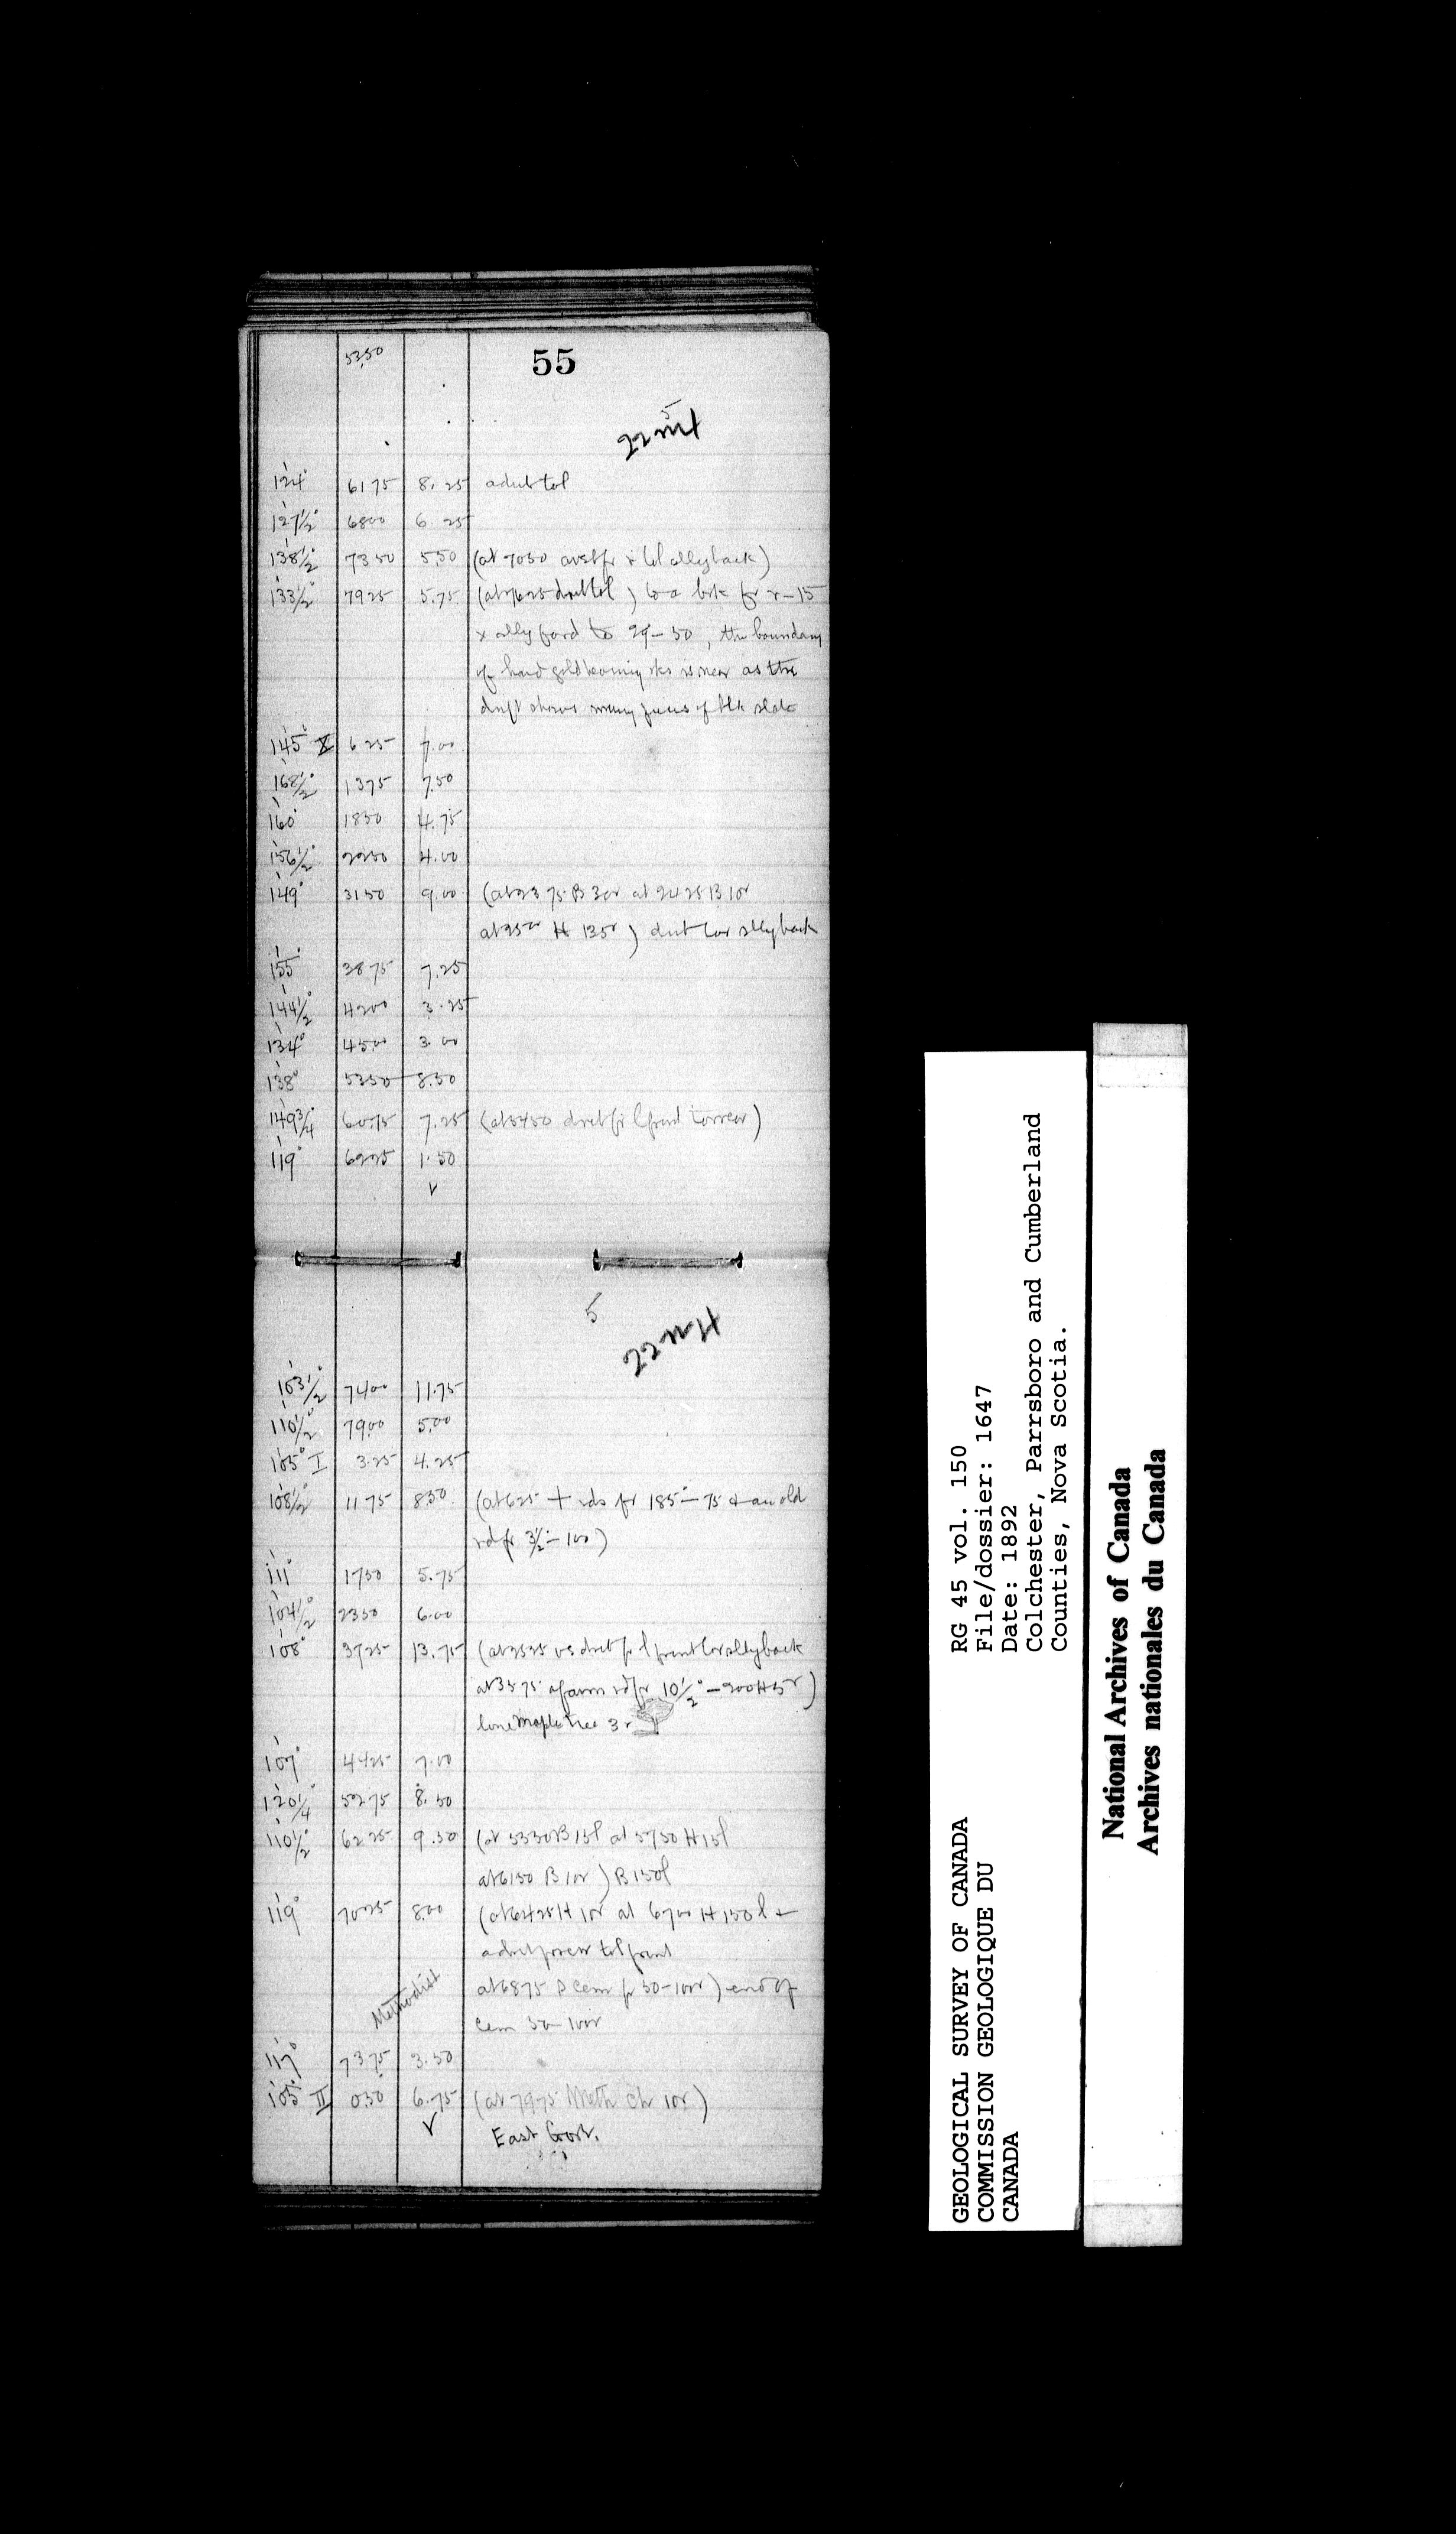 5350
55
5
22 m H
124° 6175 8.25
127½° 6800 6.25
138½° 7350 5.50 (at 7050 back)
133½° 7925 5.75 (at 7625 to a brk fr r-15
to 29-50, the boundary
of hard goldbearing rks is near as the
drift shows many pieces of blk slate
145° X 625 7.00
168½° 1375 7.50
160° 1850 4.75
156½° 2250 4.00
149° 3150 9.00 (at 2375 B 30r at 2425 B 10r
at 2500 H 135r) back
155° 3875 7.25
144½° 4200 3.25
134° 4500 3.00
138° 5350 8.50
149¾° 6075 7.25 (at 5450
119° 6225 1.50
5
22 m H
103½° 7400 11.75
110½° 7900 5.00
105° I 325 4.25
108½° 1175 8.50 (at 625 + rds fr 185°-75 & an old
rd fr 3½°-100)
111° 1750 5.75
104½° 2350 6.00
108° 3725 13.75 (at 2525 back
at 3575 a farm rd fr 10½°-200 H 5r)
lone Maple tree 3r
107° 4425 7.00
120¼° 5275 8.50
110½° 6225 9.50 (at 5350 B 15l at 5750 H 15l
at 6150 B 10r) B 150l
119° 7025 8.00 (at 6425 H 10r at 6700 H 150l &
at 6875 cem fr 50-100r) end of
Methodist
cem 50-100r
117° 7375 3.50
105° II 050 6.75 (at 7975 Meth Ch 10r)
East
GEOLOGICAL SURVEY OF CANADA
COMMISSION GEOLOGIQUE DU
CANADA
RG 45 vol. 150
File/dossier: 1647
Date: 1892
Colchester, Parrsboro and Cumberland
Counties, Nova Scotia.
National Archives of Canada
Archives nationales du Canada